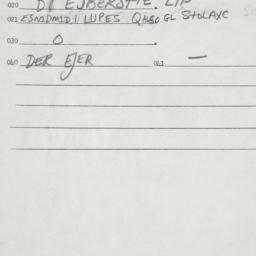 020 DI EJBERSTIE. LIP
021 ESNIDMID.I LUPES QHLSO GL STOLAXC
030 O .
060 DER EJER 061 —